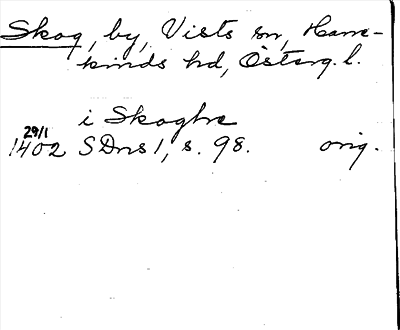 Skog, by, Vists sn, Hane-
kinds hd, Österg. l.
i Skoghe
29/1
1402 SDns 1, s. 98. orig.